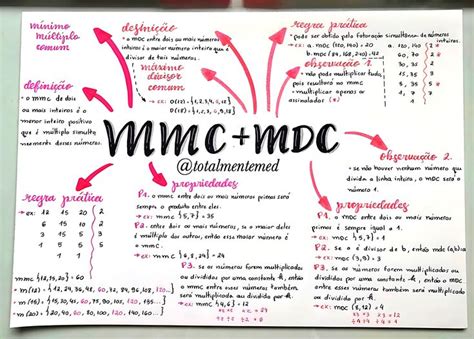 mínimo
múltiplo
comum
definição
• o mmc de dois
ou mais inteiros é o
menor inteiro positivo
que é múltiplo simulta
neamente desses números.
definição
• o mdc entre dois ou mais números
inteiros é o maior número inteiro que é
divisor de tais números.
máximo
divisor
comum
→ ex:
D(12) = {1,2,3,4,6,12}
regra prática
• pode ser obtido pela fatoração simultânea de números
→ ex: a. mdc (120, 140) = 20
b. mdc (84, 168, 210) = 42
a. 120, 140 2 *
60, 70 2 *
30, 35 2
15, 35 3
observação 1.
• não pode multiplicar tudo,
pois resultará no mmc
• multiplicar apenas os
assinalados (*)
MMC+MDC
@totalmentemed
observação 2.
• se não houver nenhum número que
divida a linha inteira, o mdc será o
número 1.
regra prática
→ ex: 12 15 20 2
6 15 10 2
3 15 5 3
1 5 5 5
1 1 1
mmc {12,15,20} = 60
• m(12) = {12, 24, 36, 48, 60, 72, 84, 96, 108, 120...}
• m(15) = {15, 30, 45, 60, 75, 90, 105, 120, 135...}
• m(20) = {20, 40, 60, 80, 100, 120, 140, 160...}
propriedades
P1. o mmc entre dois ou mais números primos será
sempre o produto entre eles.
→ ex: mmc {5,7} = 35
P2. entre dois ou mais números, se o maior deles
é múltiplo dos outros, então esse número é
o mmc.
→ ex: mmc {6,8,24} = 24
P3. se os números forem multiplicados
ou divididos por uma constante k, então
o mmc entre esses números também será
multiplicado ou dividido por k.
propriedades
P1. o mdc entre dois ou mais números
primos é sempre igual a 1.
→ ex: mdc {5,7} = 1
P2. se a é divisor de b, então mdc (a,b)=a
→ ex: mdc (3,9) = 3
P3. se os números forem multiplicados ou
divididos por uma constante k, o mdc entre
esses números também será multiplicado
ou dividido por k.
→ ex: mdc (12, 18) = 6